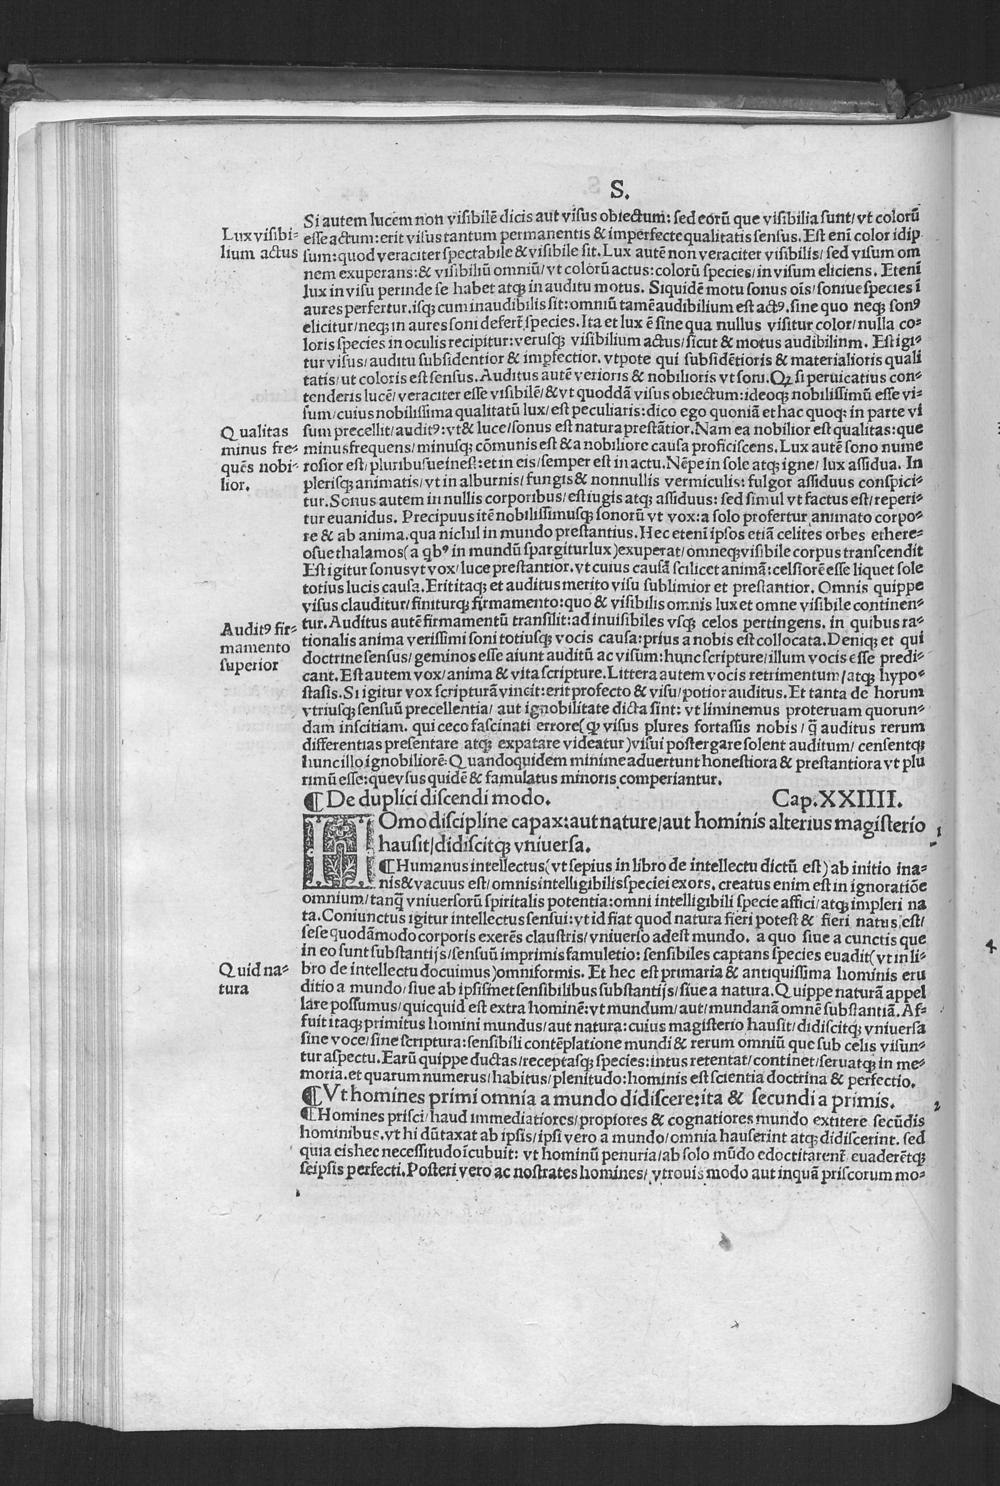 S.
Si autem lucem non visibilē dicis aut visus obiectum: sed eorū que visibilia sunt/ vt colorū
Lux visibi⸗
lium actus
esse actum: erit visus tantum permanentis & imperfecte qualitatis sensus. Est eni color idip
sum: quod veraciter spectabile & visibile sit. Lux autē non veraciter visibilis/ sed visum om
nem exuperans: & visibiliū omniū/ vt colorū actus: colorū species/ in visum eliciens. Eteni
lux in visu perinde se habet atqꝫ in auditu motus. Siquidē motu sonus ois/ soniue species ī
aures perfertur. isqꝫ cum inaudibilis sit: omniū tamē audibilium est actꝰ. sine quo neqꝫ sonꝰ
elicitur/ neqꝫ in aures soni defert̄ species. Ita et lux ē sine qua nullus visitur color/ nulla co⸗
loris species in oculis recipitur: verusqꝫ visibilium actus/ sicut & motus audibilinm. Est igi⸗
tur visus/ auditu subsidentior & imꝑfectior. vtpote qui subsidētioris & materialioris quali
tatis/ ut coloris est sensus. Auditus autē verioris & nobilioris vt soni. Qꝫ si peruicatius con⸗
tenderis lucē/ veraciter esse visibilē/ & vt quoddā visus obiectum: ideoqꝫ nobilissimū esse vi⸗
sum/ cuius nobilissima qualitatū lux/ est peculiaris: dico ego quoniā et hac quoqꝫ in parte vi
Qualitas
minus fre⸗
quēs nobi⸗
lior.
sum precellit/ auditꝰ: vt & luce/ sonus est natura prestātior. Nam ea nobilior est qualitas: que
minus frequens/ minusqꝫ cōmunis est & a nobiliore causa proficiscens. Lux autē sono nume
rosior est/ pluribusue inest: et in eis/ semper est in actu. Nēpe in sole atqꝫ igne/ lux assidua. In
plerisqꝫ animatis/ vt in alburnis/ fungis & nonnullis vermiculis: fulgor assiduus conspici⸗
tur. Sonus autem in nullis corporibus/ est iugis atqꝫ assiduus: sed simul vt factus est/ reperi⸗
tur euanidus. Precipuus itē nobilissimusqꝫ sonorū vt vox: a solo profertur animato corpo⸗
re & ab anima. qua nichil in mundo prestantius. Hec eteni ipsos etiā celites orbes ethere⸗
osue thalamos (a qbꝰ in mundū spargitur lux) exuperat/ omneqꝫ visibile corpus transcendit
Est igitur sonus vt vox/ luce prestantior. vt cuius causā scilicet animā: celsiorē esse liquet sole
totius lucis causa. Erit itaqꝫ et auditus merito visu sublimior et prestantior. Omnis quippe
visus clauditur/ finiturqꝫ firmamento: quo & visibilis omnis lux et omne visibile continen⸗
Auditꝰ fir⸗
mamento
superior
tur. Auditus autē firmamentū transilit: ad inuisibiles vsqꝫ celos pertingens. in quibus ra⸗
tionalis anima verissimi soni totiusqꝫ vocis causa: prius a nobis est collocata. Deniqꝫ et qui
doctrine sensus/ geminos esse aiunt auditū ac visum: hunc scripture/ illum vocis esse predi⸗
cant. Est autem vox/ anima & vita scripture. Littera autem vocis retrimentum/ atqꝫ hypo⸗
stasis. Si igitur vox scripturā vincit: erit profecto & visu/ potior auditus. Et tanta de horum
vtriusqꝫ sensuū precellentia/ aut ignobilitate dicta sint: vt liminemus proteruam quorun⸗
dam inscitiam. qui ceco fascinati errore (qꝫ visus plures fortassis nobis/ q̄ auditus rerum
differentias presentare atqꝫ expatare videatur) visui postergare solent auditum/ censentqꝫ
hunc illo ignobiliorē: Quandoquidem minime aduertunt honestiora & prestantiora vt plu
rimū esse: queusus quidē & famulatus minoris comperiantur.
¶ De duplici discendi modo. Cap. XXIIII.
HOmo discipline capax: aut nature/ aut hominis alterius magisterio 1
hausit/ didiscitqꝫ vniuersa.
¶ Humanus intellectus (vt sepius in libro de intellectu dictū est) ab initio ina⸗
nis & vacuus est/ omnis intelligibilis speciei exors. creatus enim est in ignoratiōe
omnium/ tanq̄ vniuersorū spiritalis potentia: omni intelligibili specie affici/ atqꝫ impleri na
ta. Coniunctus igitur intellectus sensui: vt id fiat quod natura fieri potest & fieri natus est/
sese quodāmodo corporis exerēs claustris/ vniuerso adest mundo. a quo siue a cunctis que
in eo sunt substantijs/ sensuū imprimis famuletio: sensibiles captans species euadit (vt in li⸗
Quid na⸗
tura
bro de intellectu docuimus) omniformis. Et hec est primaria & antiquissima hominis eru
ditio a mundo/ siue ab ipsismet sensibilibus substantijs/ siue a natura. Quippe naturā appel
lare possumus/ quicquid est extra hominē: vt mundum/ aut/ mundanā omnē substantiā. Af⸗
fuit itaqꝫ primitus homini mundus/ aut natura: cuius magisterio hausit/ didiscitqꝫ vniuersa
sine voce/ sine scriptura: sensibili contēplatione mundi & rerum omniū que sub celis visun⸗
tur aspectu. Earū quippe ductas/ receptasqꝫ species: intus retentat/ continet/ seruatqꝫ in me⸗
moria. et quarum numerus/ habitus/ plenitudo: hominis est scientia doctrina & perfectio.
¶ Vt homines primi omnia a mundo didiscere: ita & secundi a primis. 2
¶ Homines prisci/ haud immediatiores/ propiores & cognatiores mundo extitere secūdis
hominibus. vt hi dūtaxat ab ipsis/ ipsi vero a mundo/ omnia hauserint atqꝫ didiscerint. sed
quia eis hec necessitudo īcubuit: vt hominū penuria/ ab solo mūdo edoctitarent̄ euaderētqꝫ
seipsis perfecti. Posteri vero ac nostrates homines/ vtrouis modo aut inquā priscorum mo⸗
4